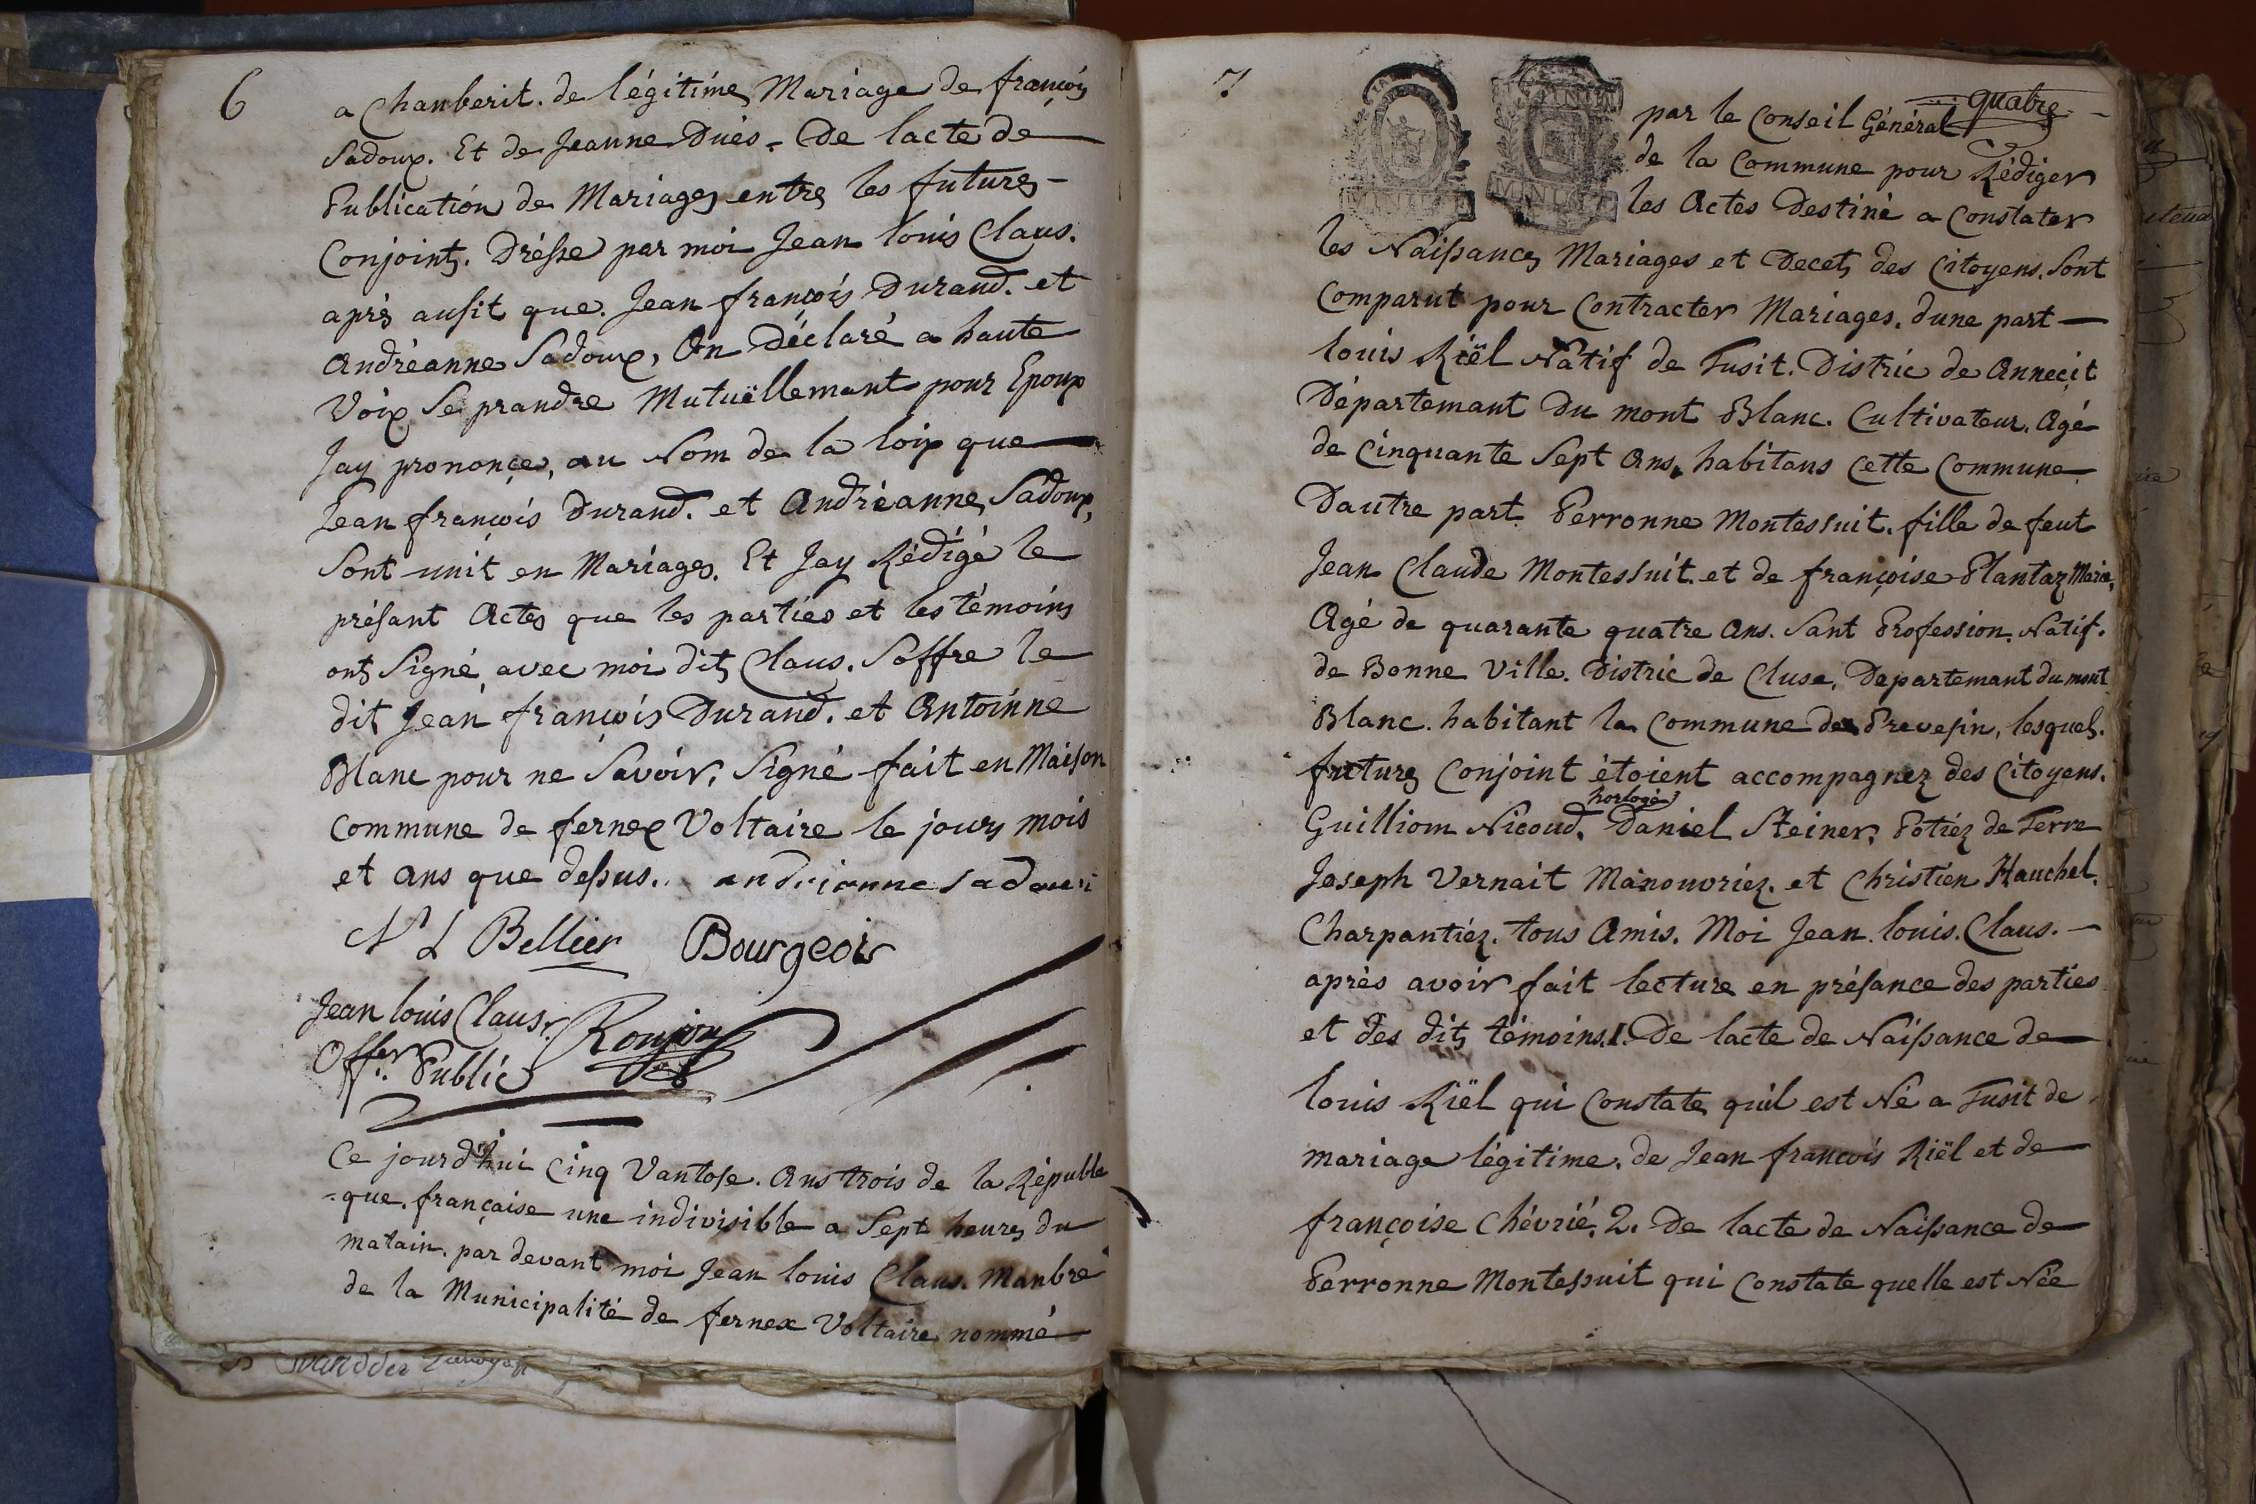 6
a Chanberit. de légitime Mariage de françois
Sadoux. Et de Jeanne Duès. De lacte de
Publication de Mariages entres les futures
Conjoints. Drésse par moi Jean louis Claus.
après ausit que. Jean françois Durand. et
Andréanne Sadoux, On Déclaré a haute
Voix Se prandre Mutuëllemant pour Epoux
Jay prononçe, au Nom de la loix que
Jean françois Durand. et Andréanne Sadoux,
Sont unit en Mariages. Et Jay Rédigé le
présant Actes que les parties et les témoins
ont Signé avec moi dit Claus. Soffre le
dit Jean françois Durand. et Antoinne
Blanc pour ne Savoir, Signé fait en Maison
Commune de fernex Voltaire le jours mois
et ans que dessus. andrianne sadoux
Bellier Bourgeois
Jean louis Claus. Roujon
Offer. Public
Ce jourd'hui Cinq Vantose. Ans trois de la Républi
=que. française une indivisible a Sept heures du
matain. par devant moi Jean louis Claus. Manbre
de la Municipalité de fernex Voltaire nommé
7
quatre
par le Conseil Général
de la Commune pour Rédiger
les Actes Destiné a Constater
les Naissances Mariages et Decets des Citoyens. Sont
Comparut pour Contracter Mariages. dune part
louis Riël Natif de Tusit. Distric de Anneçit
Départemant Du mont Blanc. Cultivateur. Agé
de Cinquante Sept Ans, habitans Cette Commune
Dautre part. Perronne Montessuit. fille de feut
Jean Claude Montessuit. et de françoise Plantaz
Agé de quarante quatre Ans. Sant Profession. Natif.
de Bonne Ville. Distric de Cluse, Departemant du mont
Blanc. habitant la Commune de Prevesin, lesquels.
futures Conjoint étoient accompagnez des Citoyens.
horlogé
Guilliom Nicoud, Daniel Steiner, Potiéz de Terre
Joseph Vernait Manouvriéz. et Christien Hauchel.
Charpantiéz. tous Amis. Moi Jean. louis. Claus.
après avoir fait lecture en présance des parties
et des dits témoins. 1. De lacte de Naissance de
louis Riël qui Constate quil est Né a Tusit de
mariage légitime. de Jean françois Riël et de
françoise Chévrié. 2. De lacte de Naissance de
Perronne Montessuit qui Constate quelle est Née